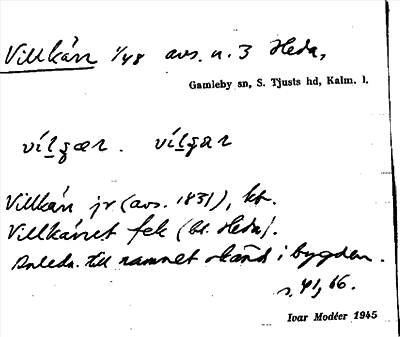 Villkán 1/48 avs. u. 3 Heda,
Gamleby sn, S. Tjusts hd, Kalm. l.
vílgær. vílgar
Villkán jr (avs. 1831), kt.
Villkánet fek (bl. Heda).
Anledn. till namnet okänd i bygden.
s. 41, 66.
Ivar Modéer 1945